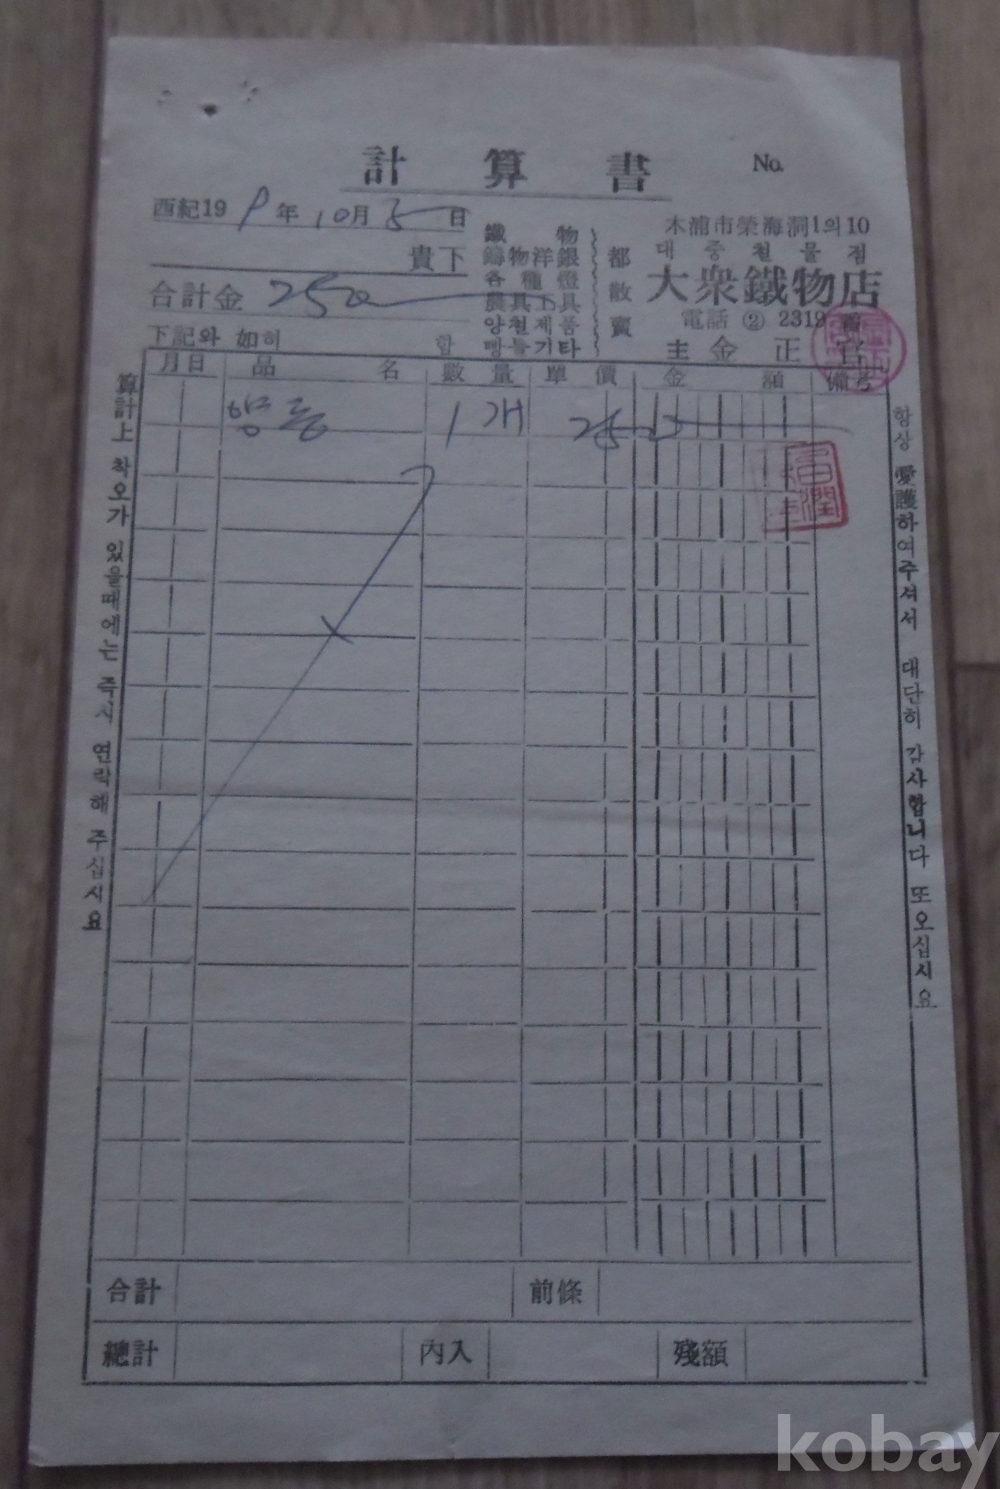 計算書
No.
西紀19 9年 10月 5日
木浦市榮海洞1의10
貴下
대중철물점
大衆鐵物店
合計金 250
電話 ② 2319番
主 金正
鐵物
鑄物洋銀
各種燈
農具工具
양철제품
빵틀기타
都散賣
下記와 如히 함
月日 品名 數量 單價 金額 備考
1개 250
算計上 착오가 있을때에는 즉시 연락해 주십시요
항상 愛護하여주셔서 대단히 감사합니다 또오십시요
合計 前條
總計 內入 殘額
kobay